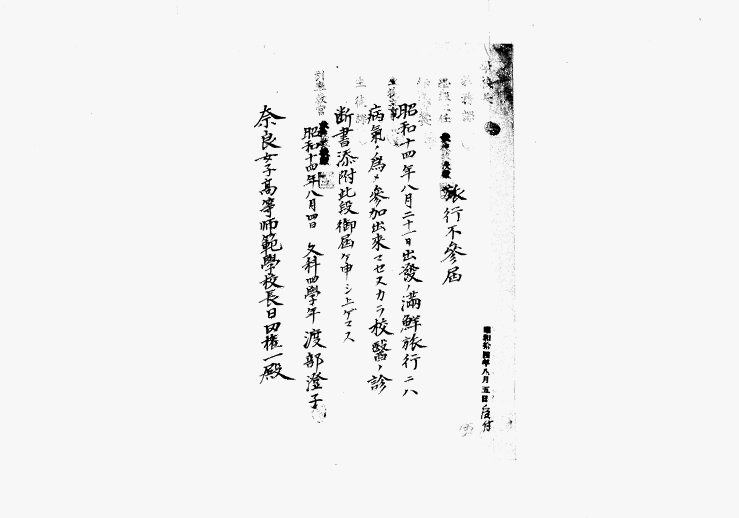 旅行不參届
昭和十四年八月二十一日出發ノ滿鮮旅行ニハ
病氣ノ爲メ參加出來マセヌカラ校醫ノ診
断書添附此段御届ケ申シ上ゲマス
昭和十四年八月四日 文科四學年 渡部澄子
奈良女子高等師範學校長日田權一殿
昭和拾四年八月五日 受付
生徒課